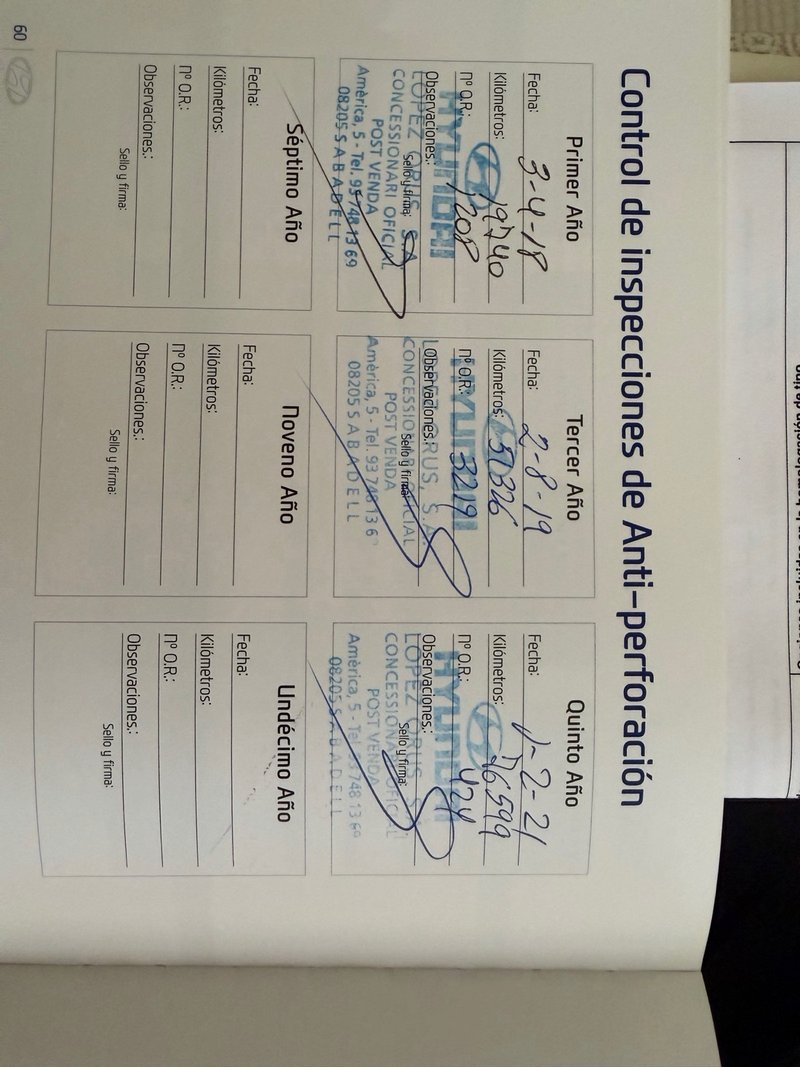 Control de inspecciones de Anti-perforación
Primer Año
Fecha: 3-4-18
Kilómetros: 19740
nº O.R.: 1208
Observaciones.:
Sello y firma:
HYUNDAI
LOPEZ ORUS, S.A.
CONCESSIONARI OFICIAL
POST VENDA
Amèrica, 5 - Tel. 93 748 13 69
08205 SABADELL
Tercer Año
Fecha: 2-8-19
Kilómetros: 51326
nº O.R.: 3219
Observaciones.:
Sello y firma:
HYUNDAI
LOPEZ ORUS, S.A.
CONCESSIONARI OFICIAL
POST VENDA
Amèrica, 5 - Tel. 93 748 13 6
08205 SABADELL
Quinto Año
Fecha: 1-2-21
Kilómetros: 76599
nº O.R.: 424
Observaciones.:
Sello y firma:
HYUNDAI
LOPEZ ORUS, S.A.
CONCESSIONARI OFICIAL
POST VENDA
Amèrica, 5 - Tel. 93 748 13 69
08205 SABADELL
Séptimo Año
Fecha:
Kilómetros:
nº O.R.:
Observaciones.:
Sello y firma:
Noveno Año
Fecha:
Kilómetros:
nº O.R.:
Observaciones.:
Sello y firma:
Undécimo Año
Fecha:
Kilómetros:
nº O.R.:
Observaciones.:
Sello y firma:
60